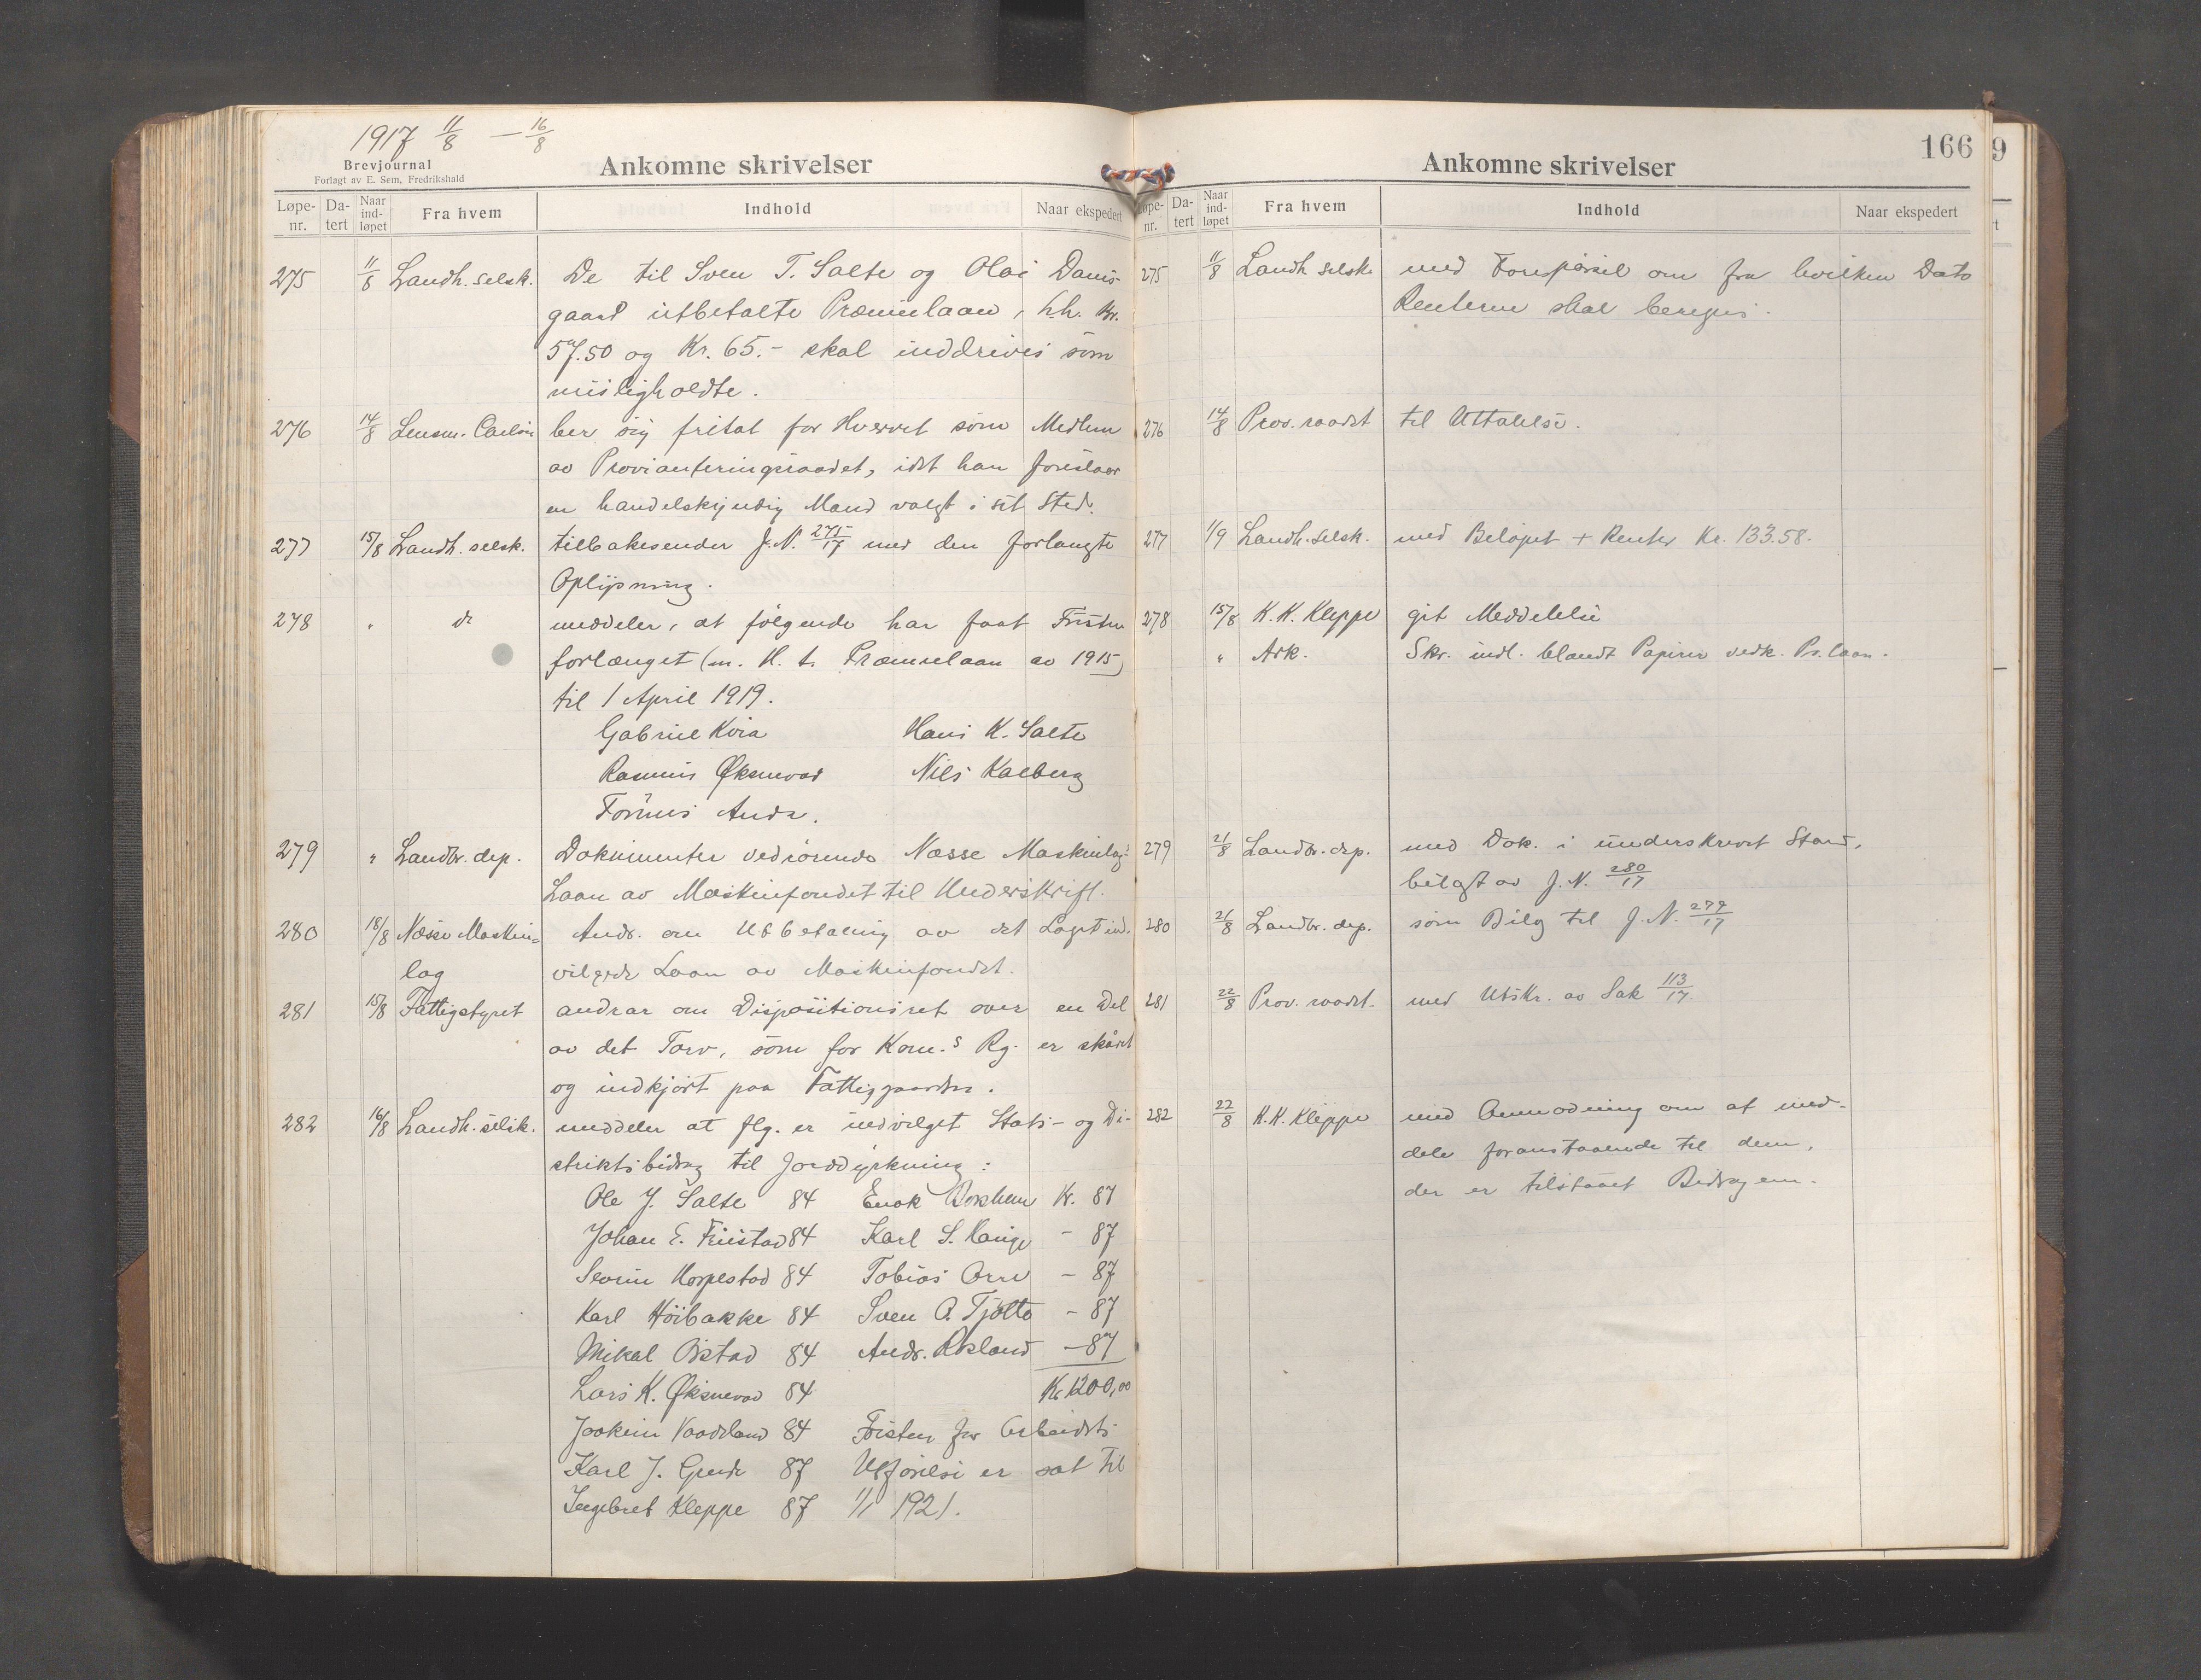 1917 11/8 — 16/8
Brevjournal
Forlagt av E. Sem, Fredrikshald
Ankomne skrivelser
Løpe-nr. Da-tert Naar ind-løpet Fra hvem Indhold Naar ekspedert
275 11/8 Landh. selsk. De til Sven T. Salte og Olai Dams-
gaard utbetalte Præmielaan, hh. Kr.
57.50 og Kr. 65.- skal inddrives som
misligholdte.
276 14/8 Lensm. ber sig fritat for Hvervet som Medlem
av Provianteringsraadet, idet han foreslaar
en handelskyndig Mand valgt i sit Sted.
277 15/8 Landh. selsk. tilbakesender J.N. 275/17 med den forlangte
Oplysning.
278 " do meddeler, at følgende har faat Fristen
forlænget (m. H. t. Præmielaan av 1915)
til 1 April 1919.
Gabriel Kvia Hans K. Salte
Rasmus Øksnevad Nils Kalberg
Tønnes Anda.
279 " Landbr. dep. Dokumenter vedrørende Næsse Maskinlags
Laan av Maskinfondet til Underskrift.
280 18/8 Næsse Maskin- Andr. om Utbetaling av det Laget ind-
lag vilgede Laan av Maskinfondet.
281 15/8 Fattigstyret andrar om Dispositionsret over en Del
av det Torv, som for Kom.s Rg. er skåret
og indkjørt paa Fattiggaarden.
282 16/8 Landh. selsk. meddeler at flg. er indvilget Stats- og Di-
striktsbidrag til Jorddyrkning:
Ole J. Salte 84 Enok Kr. 87
Johan E. Friestad 84 Karl S. Hauge - 87
Sevrin Horpestad 84 Tobias Orre - 87
Karl Höibakke 84 Sven O. Tjøtta - 87
Mikal Østad 84 Andr. - 87
Lars K. Øksnevad 84 Kr 1200,00
Joakim Vaadeland 84 Fristen for Arbeidets
Karl J. Grude 87 Utførelse er sat til
Ingebret Kleppe 87 1/1 1921.
Ankomne skrivelser
166
9
Løpe-nr. Da-tert Naar ind-løpet Fra hvem Indhold Naar ekspedert
275 11/8 Landh selsk. med Forespørsel om fra hvilken Dato
Renterne skal beregnes.
276 14/8 Prov. raadet til Uttalelse.
277 1/9 Landh. selsk. med Beløpet + Renter Kr. 133.58.
278 15/8 K. K. Kleppe git Meddelelse
" Ark. Skr. indl. blandt Papirer vedk. Pr. laan.
279 21/8 Landbr. dep. med Dok. i underskrevet Stand,
bilagt av J. N. 280/17
280 21/8 Landbr. dep. som Bilag til J. N. 279/17
281 22/8 Prov. raadet. med Utskr. av Sak 113/17.
282 22/8 K. K. Kleppe med Anmodning om at med-
dele foranstaaende til dem,
der er tilstaaet Bidragene.